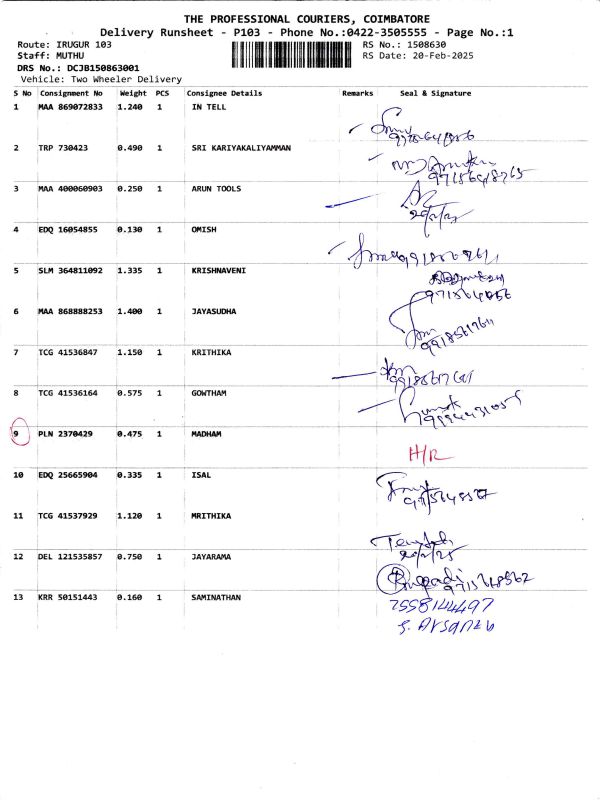 THE PROFESSIONAL COURIERS, COIMBATORE
Delivery Runsheet - P103 - Phone No.:0422-3505555 - Page No.:1
Route: IRUGUR 103 RS No.: 1508630
Staff: MUTHU RS Date: 20-Feb-2025
DRS No.: DCJB150863001
Vehicle: Two Wheeler Delivery
S No Consignment No Weight PCS Consignee Details Remarks Seal & Signature
1 MAA 869072833 1.240 1 IN TELL
2 TRP 730423 0.490 1 SRI KARIYAKALIYAMMAN
3 MAA 400060903 0.250 1 ARUN TOOLS
4 EDQ 16054855 0.130 1 OMISH
5 SLM 364811092 1.335 1 KRISHNAVENI
6 MAA 868888253 1.400 1 JAYASUDHA
7 TCG 41536847 1.150 1 KRITHIKA
8 TCG 41536164 0.575 1 GOWTHAM
9 PLN 2370429 0.475 1 MADHAM
H/R
10 EDQ 25665904 0.335 1 ISAL
11 TCG 41537929 1.120 1 MRITHIKA
20/2/25
12 DEL 121535857 0.750 1 JAYARAMA
13 KRR 50151443 0.160 1 SAMINATHAN
7558144497